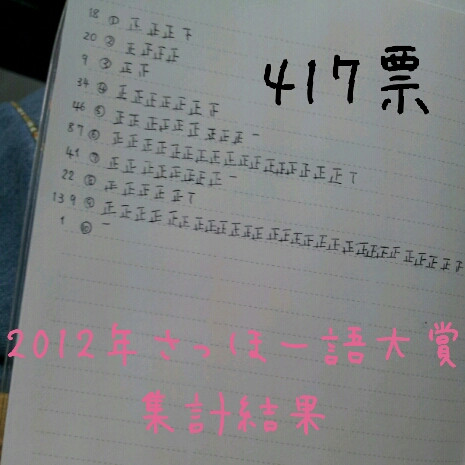 417票
18 ① 正正正下
20 ② 正正正正
9 ③ 正正
34 ④ 正正正正正正正
46 ⑤ 正正正正正正正正正一
87 ⑥ 正正正正正正正正正正正正正正正正正T
41 ⑦ 正正正正正正正正一
22 ⑧ 正正正正T
139 ⑨ 正正正正正正正正正正正正正正正正正正正正正正正正正正正
1 ⑩ 一
2012年さっほー語大賞
集計結果